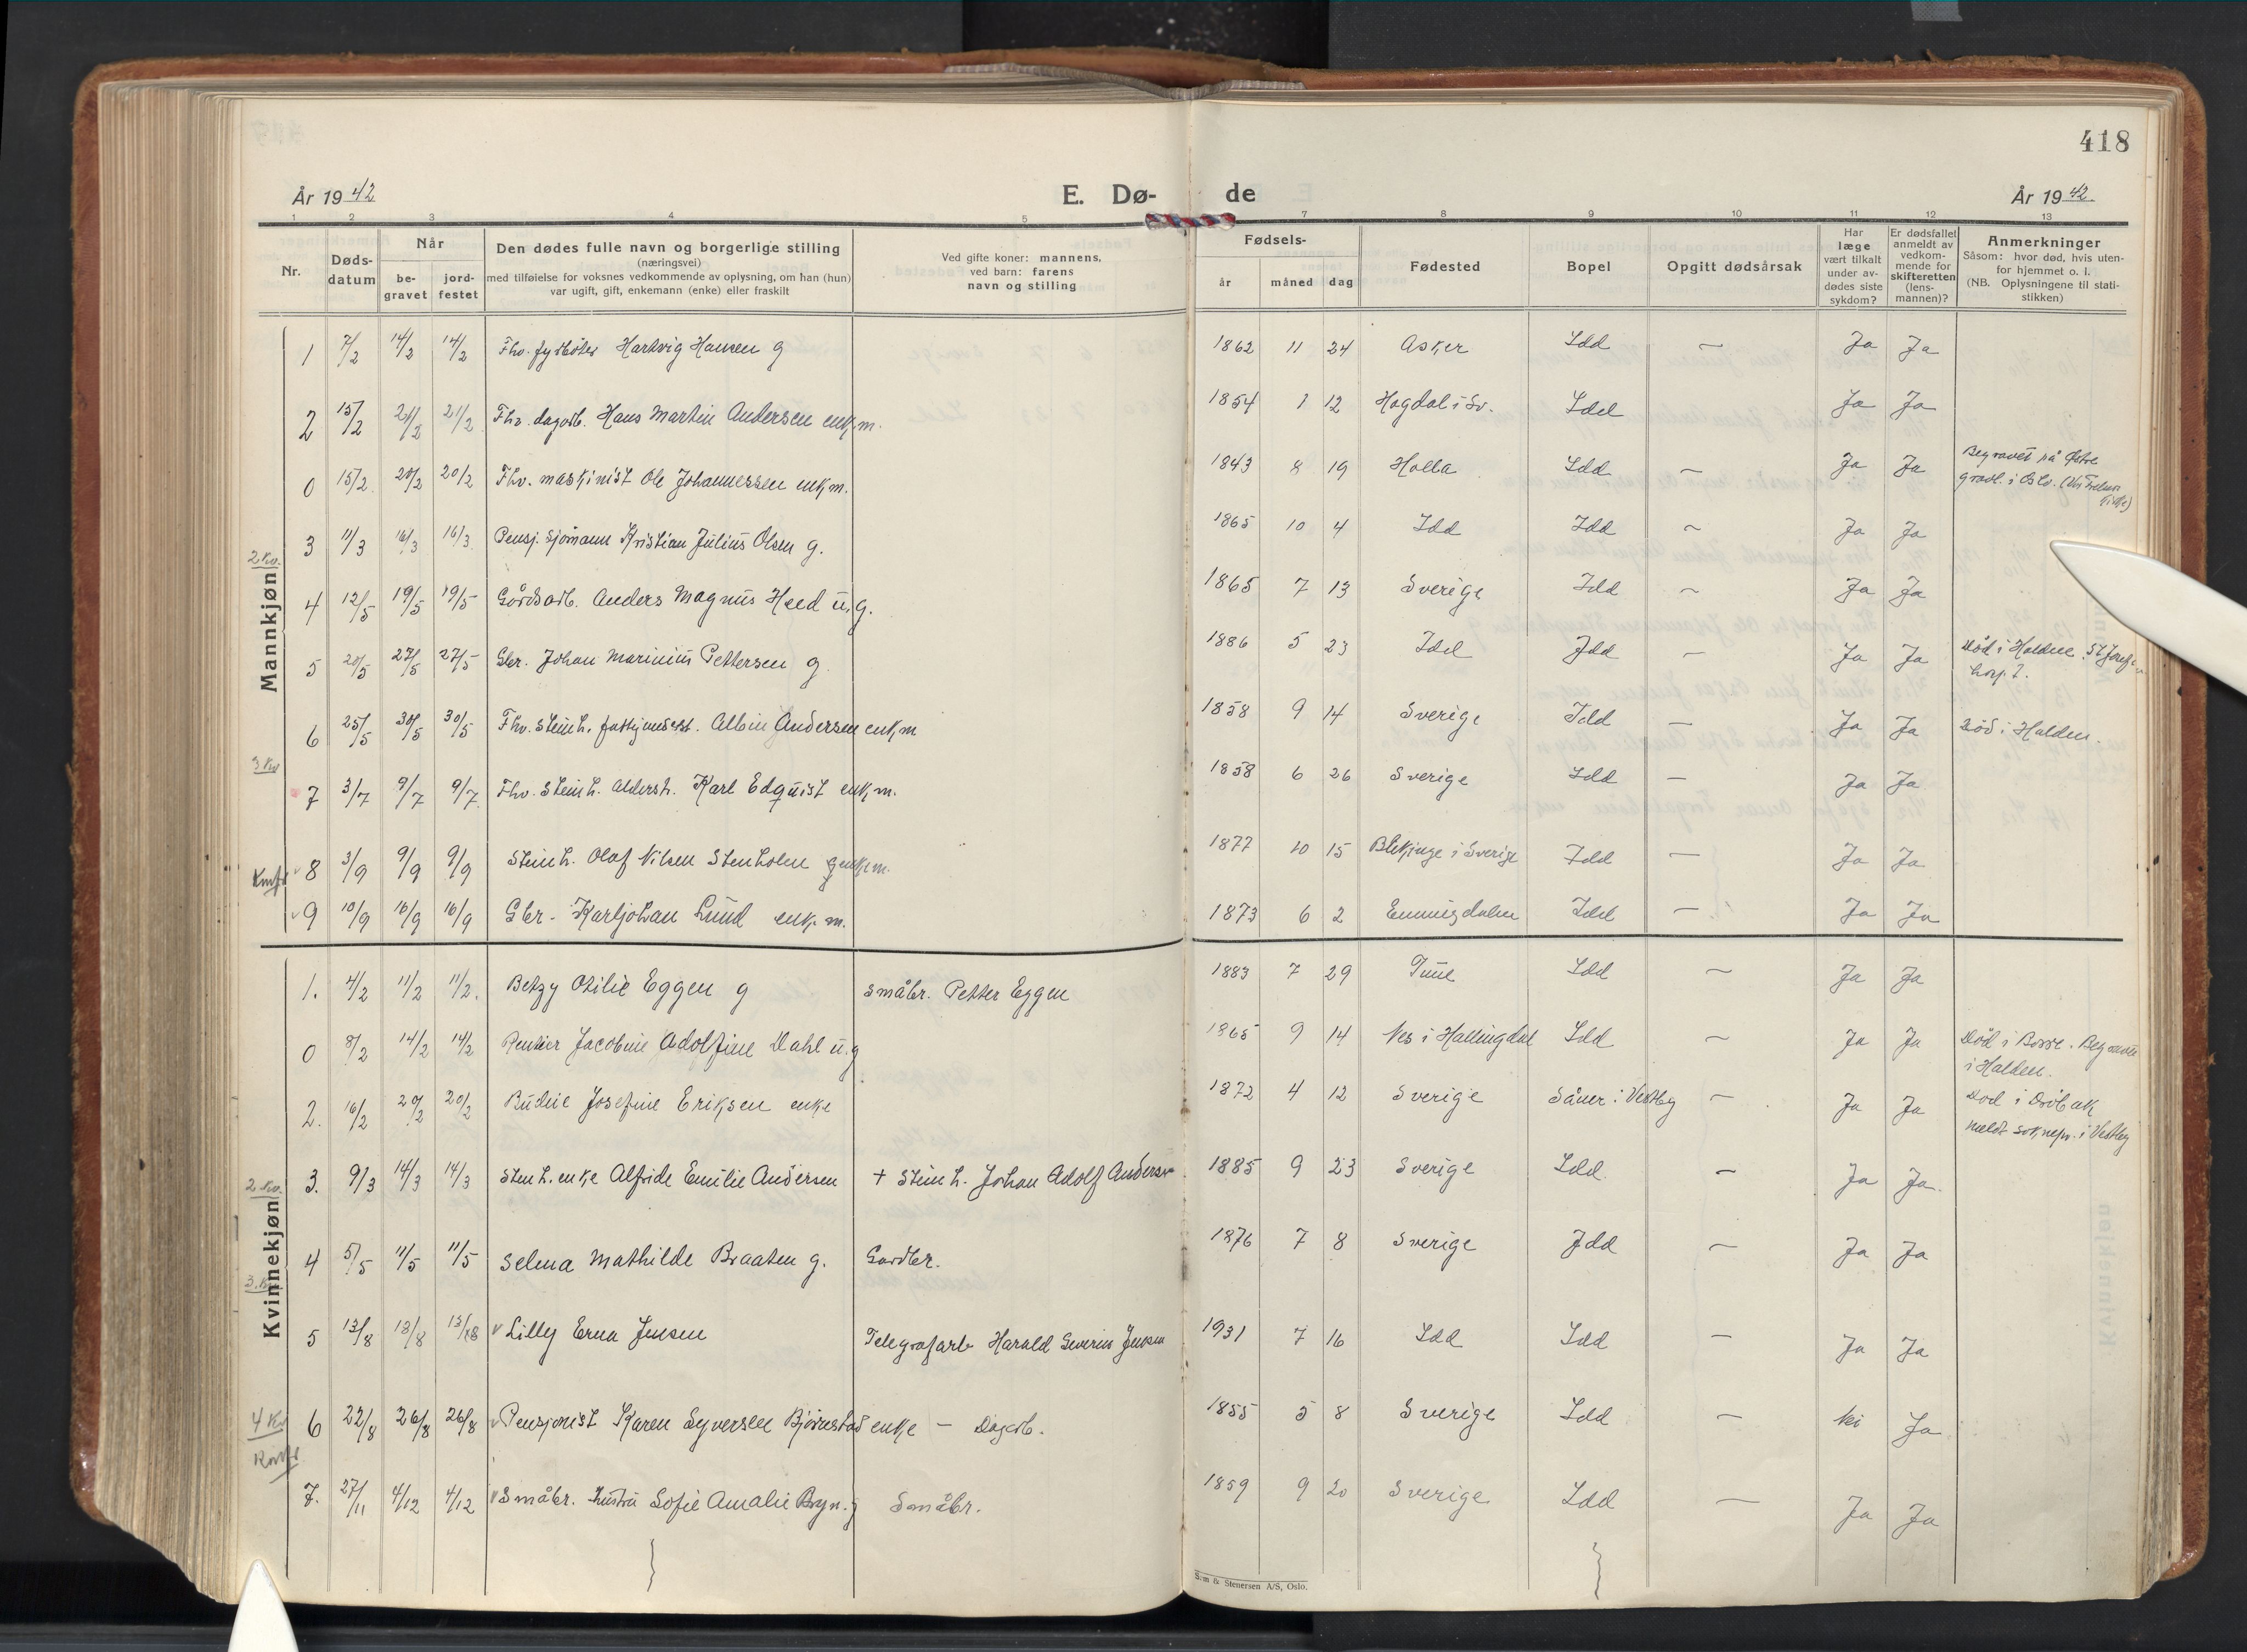 418
År 1942 E. Dø- de År 1942
1 2 3 4 5 7 8 9 10 11 12 13
Nr.
Døds-
datum
Når
be-
gravet
jord-
festet
Den dødes fulle navn og borgerlige stilling
(næringsvei)
med tilføielse for voksnes vedkommende av oplysning, om han (hun)
var ugift, gift, enkemann (enke) eller fraskilt
Ved gifte koner: mannens,
ved barn: farens
navn og stilling
Fødsels-
år måned dag
Fødested
Bopel
Opgitt dødsårsak
Har
læge
vært tilkalt
under av-
dødes siste
sykdom?
Er dødsfallet
anmeldt av
vedkom-
mende for
skifteretten
(lens-
mannen)?
Anmerkninger
Såsom: hvor død, hvis uten-
for hjemmet o. l.
(NB. Oplysningene til stati-
stikken)
Mannkjøn
1 7/2 14/2 14/2 Fhv. fyrbøter Hartvig Hansen g 1862 11 24 Asker Idd — Ja Ja
2 15/2 21/2 21/2 Fhv. dagarb. Hans Martin Andersen enkm. 1854 1 12 Hogdal i Sv. Idd Ja Ja
0 15/2 20/2 20/2 Fhv. maskinist Ole Johannessen enkm. 1843 8 19 Holla Idd — Ja Ja Begravet på Østre
gravl. i Oslo.
2 kv.
3 11/3 16/3 16/3 Pensj. sjømann Kristian Julius Olsen g. 1865 10 4 Idd Idd — Ja Ja
4 12/5 19/5 19/5 Gårdsarb. Anders Magnus Heed u.g. 1865 7 13 Sverige Idd — Ja Ja
5 20/5 27/5 27/5 Gbr. Johan Marinius Pettersen g 1886 5 23 Idd Idd — Ja Ja Død i Halden St Josefs
hosp.
6 25/5 30/5 30/5 Fhv. steinh. Albin Andersen enkm 1858 9 14 Sverige Idd — Ja Ja Død i Halden.
3 kv
7 3/7 9/7 9/7 Fhv. Steinh. alderst. Karl Edquist enkm. 1858 6 26 Sverige Idd — Ja Ja
8 3/9 9/9 9/9 Steinh. Olaf Nilsen Stenholm enkm. 1877 10 15 Blekinge i Sverige Idd — Ja Ja
9 10/9 16/9 16/9 Gbr. Karljohan Lund enk. m. 1873 6 2 Enningdalen Idd — Ja Ja
Kvinnekjøn
1. 4/2 11/2 11/2. Betzy Otilie Eggen g småbr. Petter Eggen 1883 7 29 Tune Idd — Ja Ja
0 8/2 14/2 14/2 Rentier Jacobine Adolfine Dahl u.g 1865 9 14 Nes i Hallingdal Idd — Ja Ja Død i Borre. Begravet
i Halden.
2. 16/2 20/2 20/2 Budeie Josefine Eriksen enke 1872 4 12 Sverige Såner i Vestby — Ja Ja Død i Drøbak
meldt soknepr. i Vestby
2 kv.
3. 9/3 14/3 14/3 Steinh. enke Alfride Emilie Andersen + Steinh. Johan Adolf Andersen 1885 9 23 Sverige Idd. — Ja Ja.
4 5/5 11/5 11/5 Selma Mathilde Braaten g. Gardbr. 1876 7 8 Sverige Idd — Ja Ja
3. kv.
5 13/8 18/8 18/8 v Lilly Erna Jensen Telegrafarb Harald Severin Jensen 1931 7 16 Idd Idd — Ja Ja
4 Kv
6 22/8 26/8 26/8 v Pensjonist Karen Syversen Bjørnstad enke — Dagarb. 1855 5 8 Sverige Idd — Nei Ja
7. 27/11 4/12 4/12 v Småbr. hustru Sofie Amalie Bryn. g Småbr. 1859 9 20 Sverige Idd — Ja Ja
Sem & Stenersen A/S, Oslo.